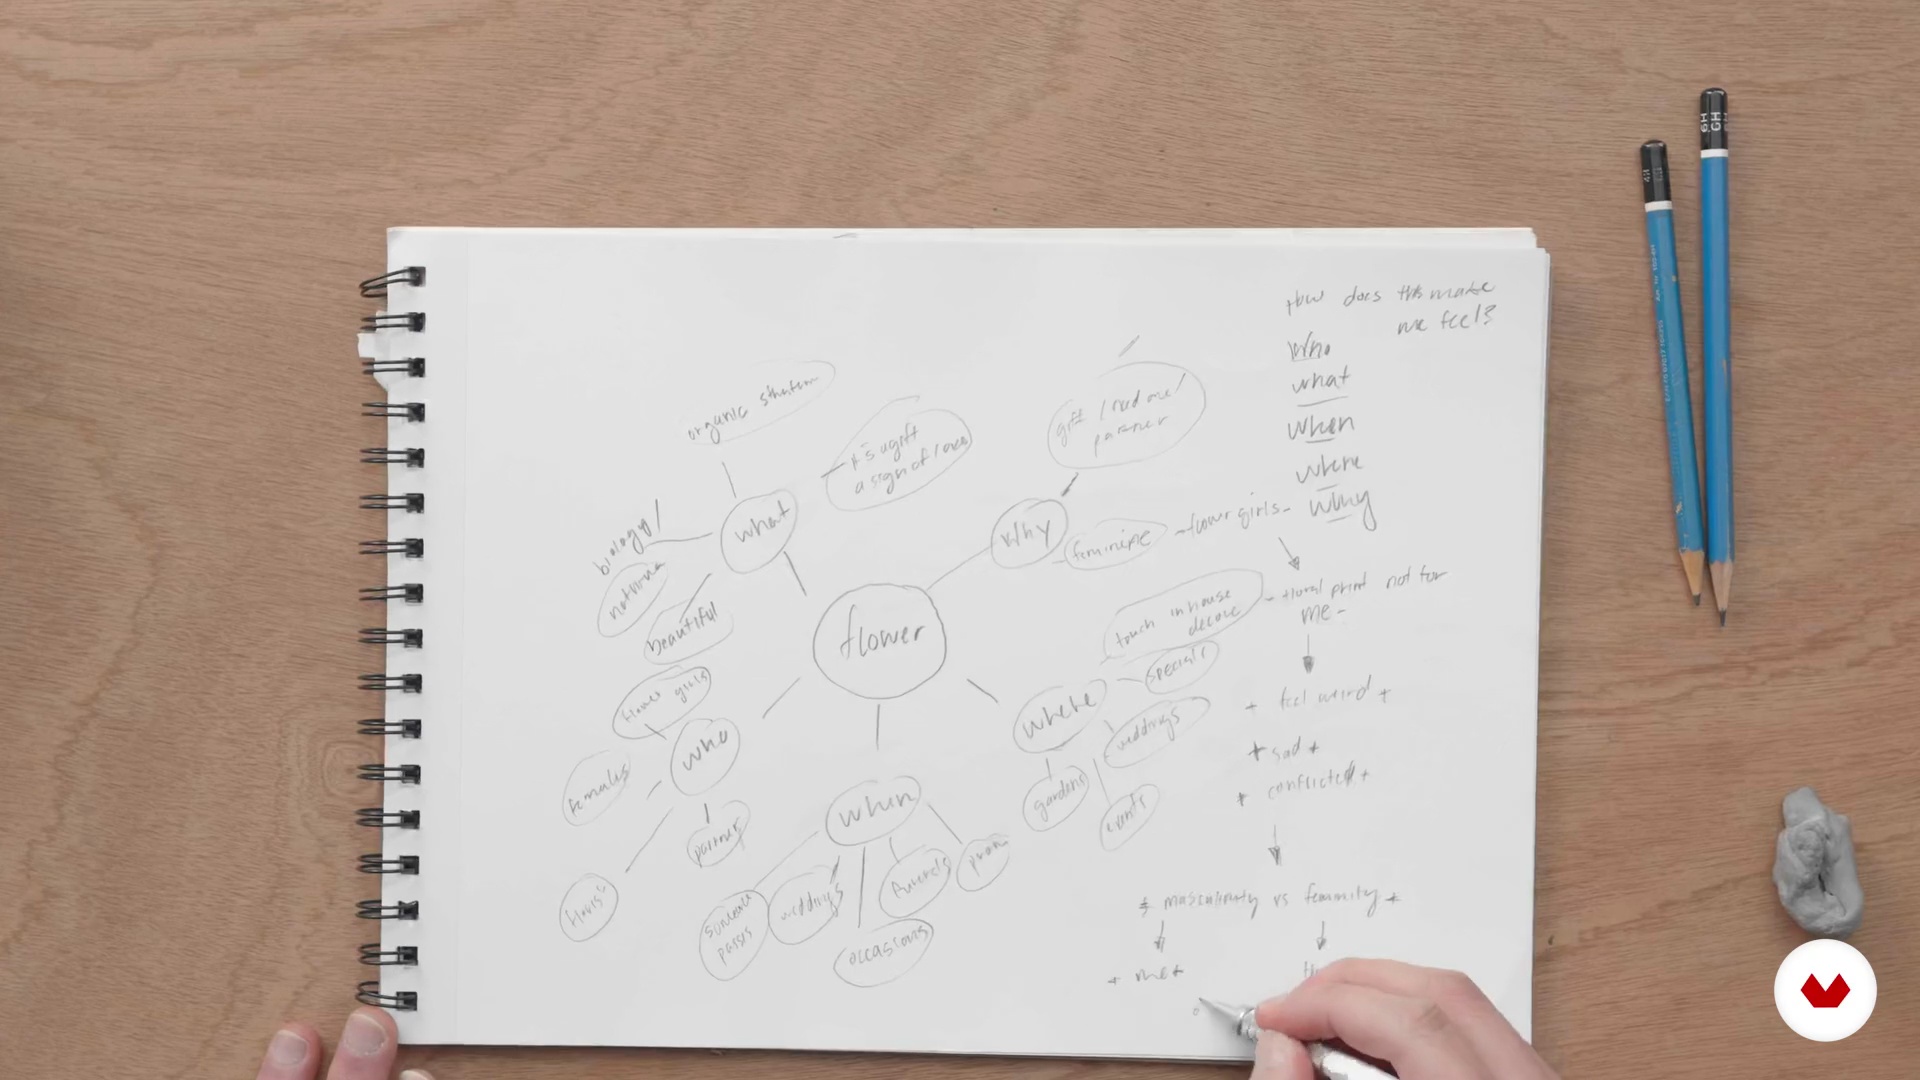 How does this make
me feel?
Who
what
when
where
why
organic
it's a gift
a sign of love
gift / loved one /
partner
what
biology /
beautiful
why
feminine
- flower girls -
- floral print not for
me -
flower
touch in house
decore
where
weddings
gardens
events
flower girls
who
females
partner
florist
when
someone
passes
weddings
occasions
funerals
prom
+ feel weird +
+ sad +
+ conflicted +
vs
+ me +
6H
4H